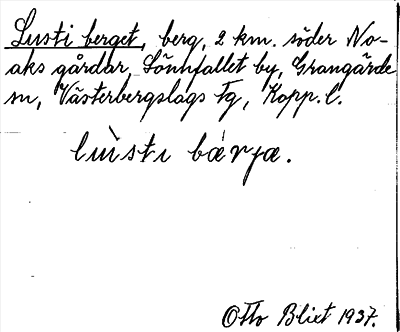 Lusti berget, berg, 2 km. söder No-
aks gårdar, Sönnfallet by, Grangärde
sn, Västerbergslags Fg, Kopp. l.
lùsti bárja.
Otto Blixt 1937.